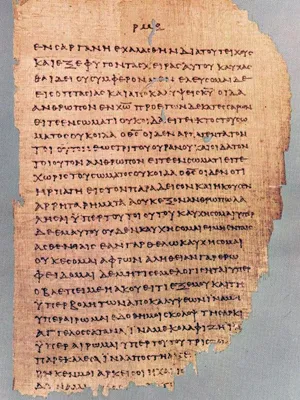 ΕΝϹΑΡΓΑΝΗΕΧΑΛΑϹΘΗΝΔΙΑΤΟΥΤΕΙΧΟΥϹ
ΚΑΙΕΞΕΦΥΓΟΝΤΑϹΧΕΙΡΑϹΑΥΤΟΥΚΑΥΧΑϹ
ΘΑΙΔΕΙΟΥϹΥΜΦΕΡΟΝΜΕΝΕΛΕΥϹΟΜΑΙΔΕ
ΕΙϹΟΠΤΑϹΙΑϹΚΑΙΑΠΟΚΑΛΥΨΕΙϹΚ̅Υ̅ΟΙΔΑ
ΑΝΘΡΩΠΟΝΕΝΧ̅Ρ̅Ω̅ΠΡΟΕΤΩΝΔΕΚΑΤΕϹϹΑΡΩΝ
ΕΙΤΕΕΝϹΩΜΑΤΙΟΥΚΟΙΔΑΕΙΤΕΕΚΤΟϹΤΟΥϹΩ
ΜΑΤΟϹΟΥΚΟΙΔΑΟΘ̅Ϲ̅ΟΙΔΕΝΑΡΠΑΓΕΝΤΑΤΟΝ
ΤΟΙΟΥΤΟΝΕΩϹΤΡΙΤΟΥΟΥΡΑΝΟΥΚΑΙΟΙΔΑΤΟΝ
ΤΟΙΟΥΤΟΝΑΝΘΡΩΠΟΝΕΙΤΕΕΝϹΩΜΑΤΙΕΙΤΕ
ΧΩΡΙϹΤΟΥϹΩΜΑΤΟϹΟΥΚΟΙΔΑΟΘ̅Ϲ̅ΟΙΔΕΝΟΤΙ
ΗΡΠΑΓΗΕΙϹΤΟΝΠΑΡΑΔΕΙϹΟΝΚΑΙΗΚΟΥϹΕΝ
ΑΡΡΗΤΑΡΗΜΑΤΑΑΟΥΚΕΞΟΝΑΝΘΡΩΠΩΛΑ
ΛΗϹΑΙΥΠΕΡΤΟΥΤΟΙΟΥΤΟΥΚΑΥΧΗϹΟΜΑΙΥΠΕΡ
ΔΕΕΜΑΥΤΟΥΟΥΔΕΝΚΑΥΧΗϹΟΜΑΙΕΙΜΗΕΝΤΑΙϹ
ΑϹΘΕΝΕΙΑΙϹΕΑΝΓΑΡΘΕΛΩΚΑΥΧΗϹΟΜΑΙ
ΟΥΚΕϹΟΜΑΙΑΦΡΩΝΑΛΗΘΕΙΑΝΓΑΡΕΡΩ
ΦΕΙΔΟΜΑΙΔΕΜΗΤΙϹΕΜΕΛΟΓΙϹΗΤΑΙΥΠΕΡ
ΟΒΛΕΠΕΙΜΕΗΑΚΟΥΕΙΤΙΕΞΕΜΟΥΚΑΙΤΗ
ΥΠΕΡΒΟΛΗΤΩΝΑΠΟΚΑΛΥΨΕΩΝΙΝΑΜΗ
ΥΠΕΡΑΙΡΩΜΑΙΕΔΟΘΗΜΟΙϹΚΟΛΟΨΤΗϹΑΡΚΙ
ΑΓΓΕΛΟϹϹΑΤΑΝΑΙΝΑΜΕΚΟΛΑΦΙΖΗΙΝΑ
ΥΠΕΡΑΙΡΩΜΑΙΥΠΕΡΤΟΥΤΟΥΤΡΙϹΤΟΝ
ΠΑΡΕΚΑΛΕϹΑΙΝΑΑΠΟϹΤΗΑΠ
ΡΗΚΕΝΜΟΙΑΡΚΕΙϹΟΙΗΧΑΡΙϹ